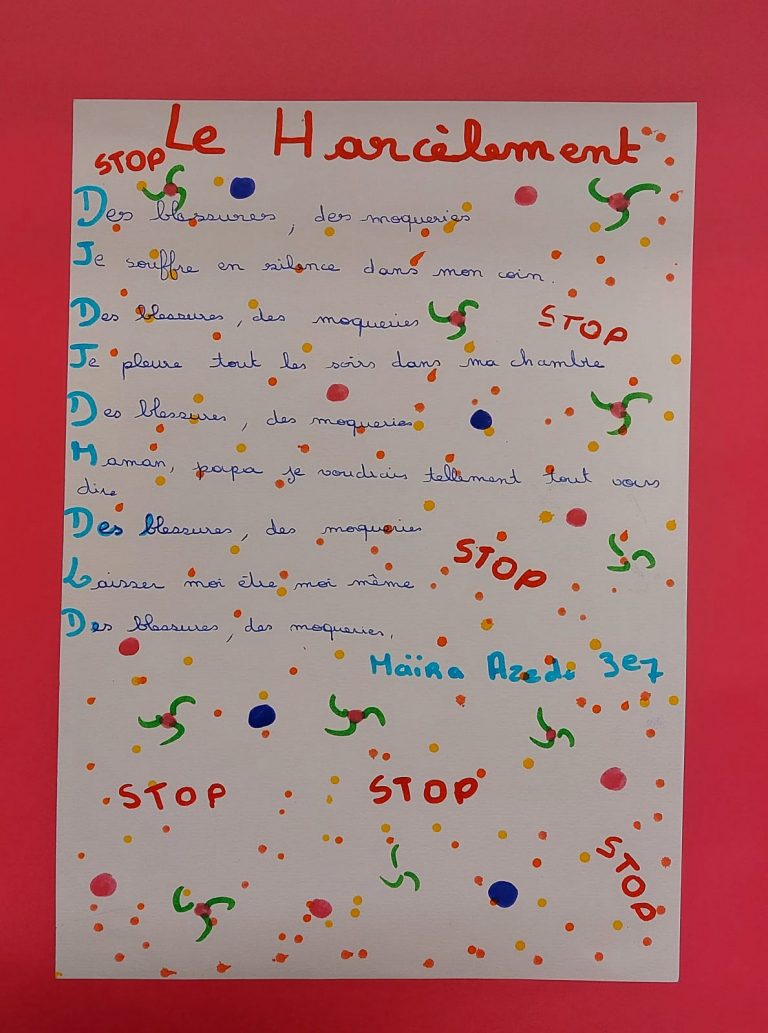 Le Harcèlement
STOP
Des blessures, des moqueries
Je souffre en silence dans mon coin.
Des blessures, des moqueries
STOP
Je pleure tout les soirs dans ma chambre
Des blessures, des moqueries
Maman, papa je voudrais tellement tout vous
dire
Des blessures, des moqueries
STOP
Laisser moi être moi même
Des blessures, des moqueries.
Maïra Azedi 3e7
STOP
STOP
STOP